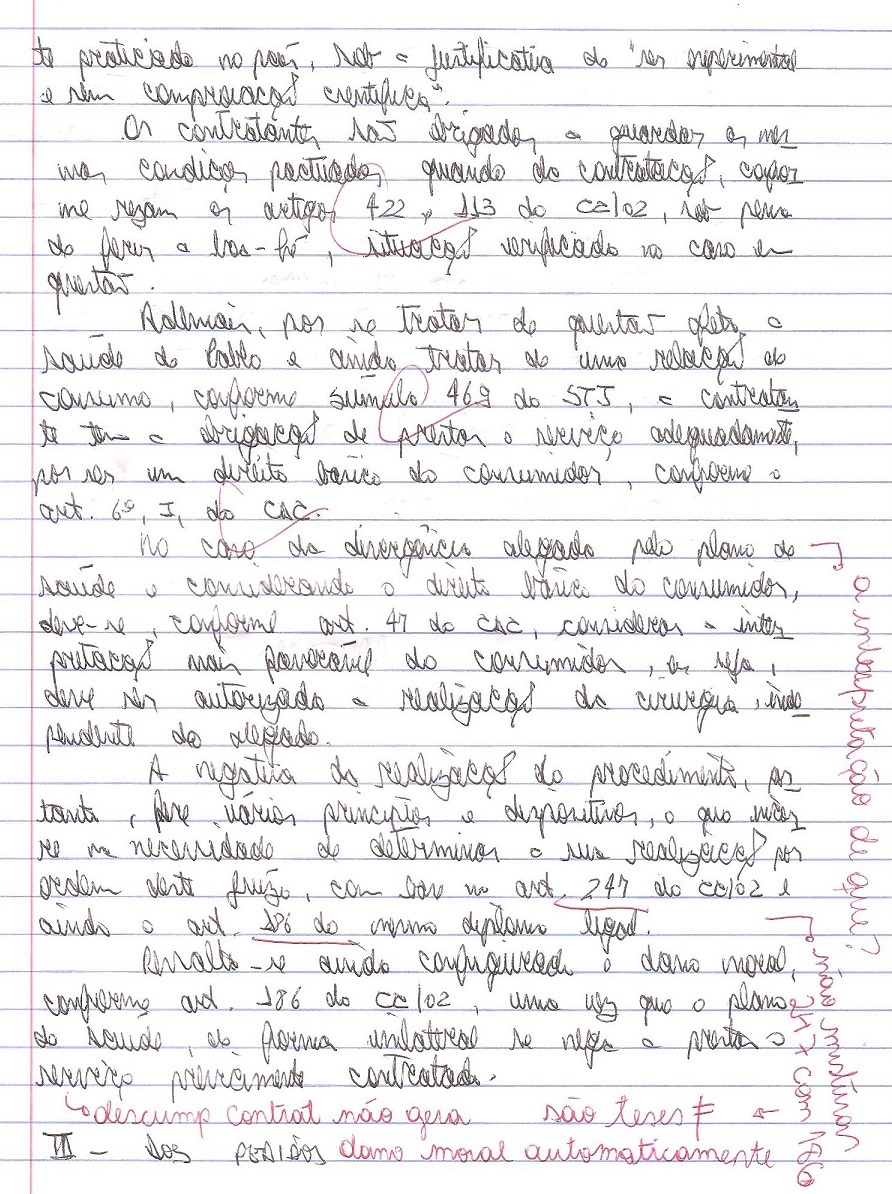 te praticado no país, sob a justificativa de "ser experimental
e sem comprovação científica".
Os contratantes são obrigados a guardar as mes
mas condições pactuadas quando da contratação, confor
me rezam os artigos 422 e 113 do CC/02, sob pena
de ferir a boa-fé, situação verificada no caso em
questão.
Ademais, por se tratar de questão afeta a
saúde de Pablo e ainda tratar de uma relação de
consumo, conforme súmula 469 do STJ, a contratan
te tem a obrigação de prestar o serviço adequadamente,
por ser um direito básico do consumidor, conforme o
art. 6º, I, do CDC.
No caso da divergência alegada pelo plano de
saúde e considerando o direito básico do consumidor,
deve-se, conforme art. 47 do CDC, considerar a inter
pretação mais favorável do consumidor, ou seja,
deve ser autorizada a realização da cirurgia, inde
pendente do alegado.
A negativa da realização do procedimento, por
tanto, fere vários princípios e dispositivos, o que
na necessidade de determinar a sua realização por
ordem deste juízo, com base no art. 247 do CC/02 e
ainda o art. 186 do mesmo diploma legal.
Ressalta-se ainda configurado o dano moral,
conforme art. 186 do CC/02, uma vez que o plano
de saúde, de forma unilateral se nega a prestar o
serviço previamente contratado.
↳ descump contrat não gera são teses ≠ ←
VI - DOS PEDIDOS dano moral automaticamente
a interpretação de que?
não misturar
247 com 186